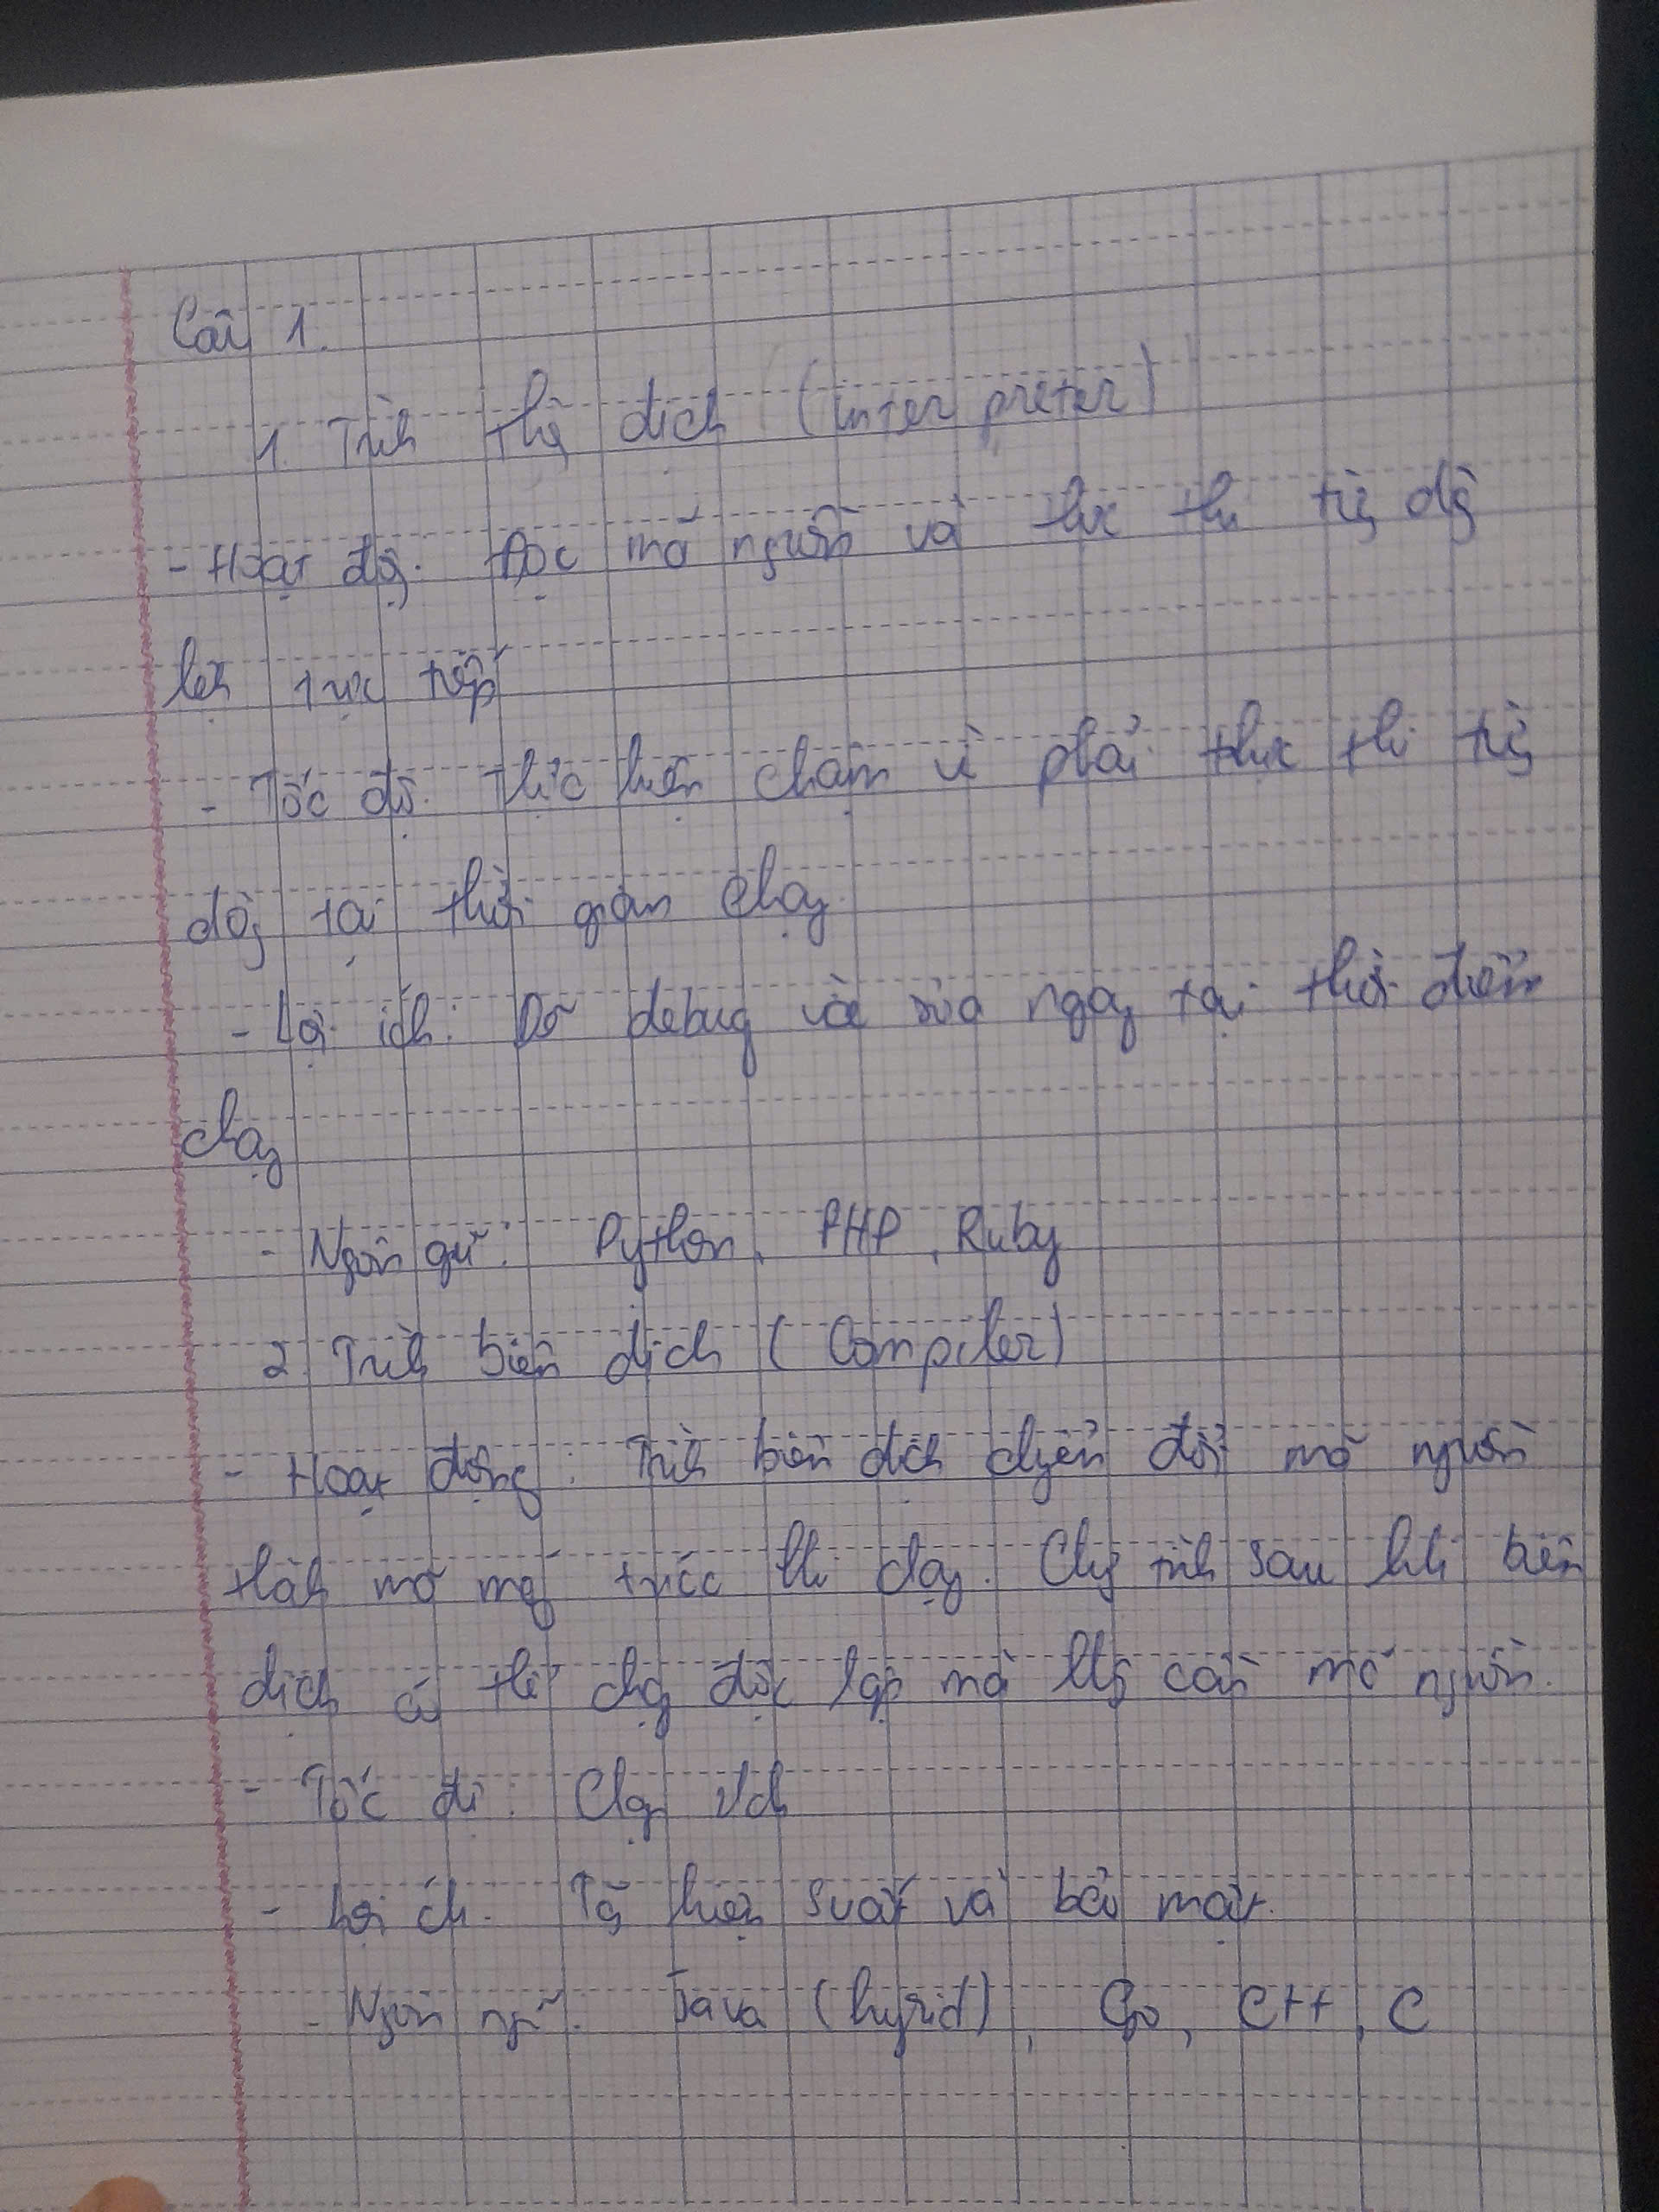 Câu 1.
1. Trình thông dịch (interpreter)
- Hoạt động: Đọc mã nguồn và thực thi từng dòng
lệnh trực tiếp
- Tốc độ: Thực hiện chậm vì phải thực thi từng
dòng tại thời gian chạy
- Lợi ích: Dễ debug và sửa ngay tại thời điểm
chạy
- Ngôn gữ: Python, PHP, Ruby
2. Trình biên dịch (Compiler)
- Hoạt động: Trình biên dịch chuyển đổi mã nguồn
thành mã máy trước khi chạy. Chương trình sau khi biên
dịch có thể chạy độc lập mà không cần mã nguồn.
- Tốc độ: Chạy nhanh
- Lợi ích: Tăng hiệu suất và bảo mật.
- Ngôn ngữ: Java (hyrid), Go, C++, C